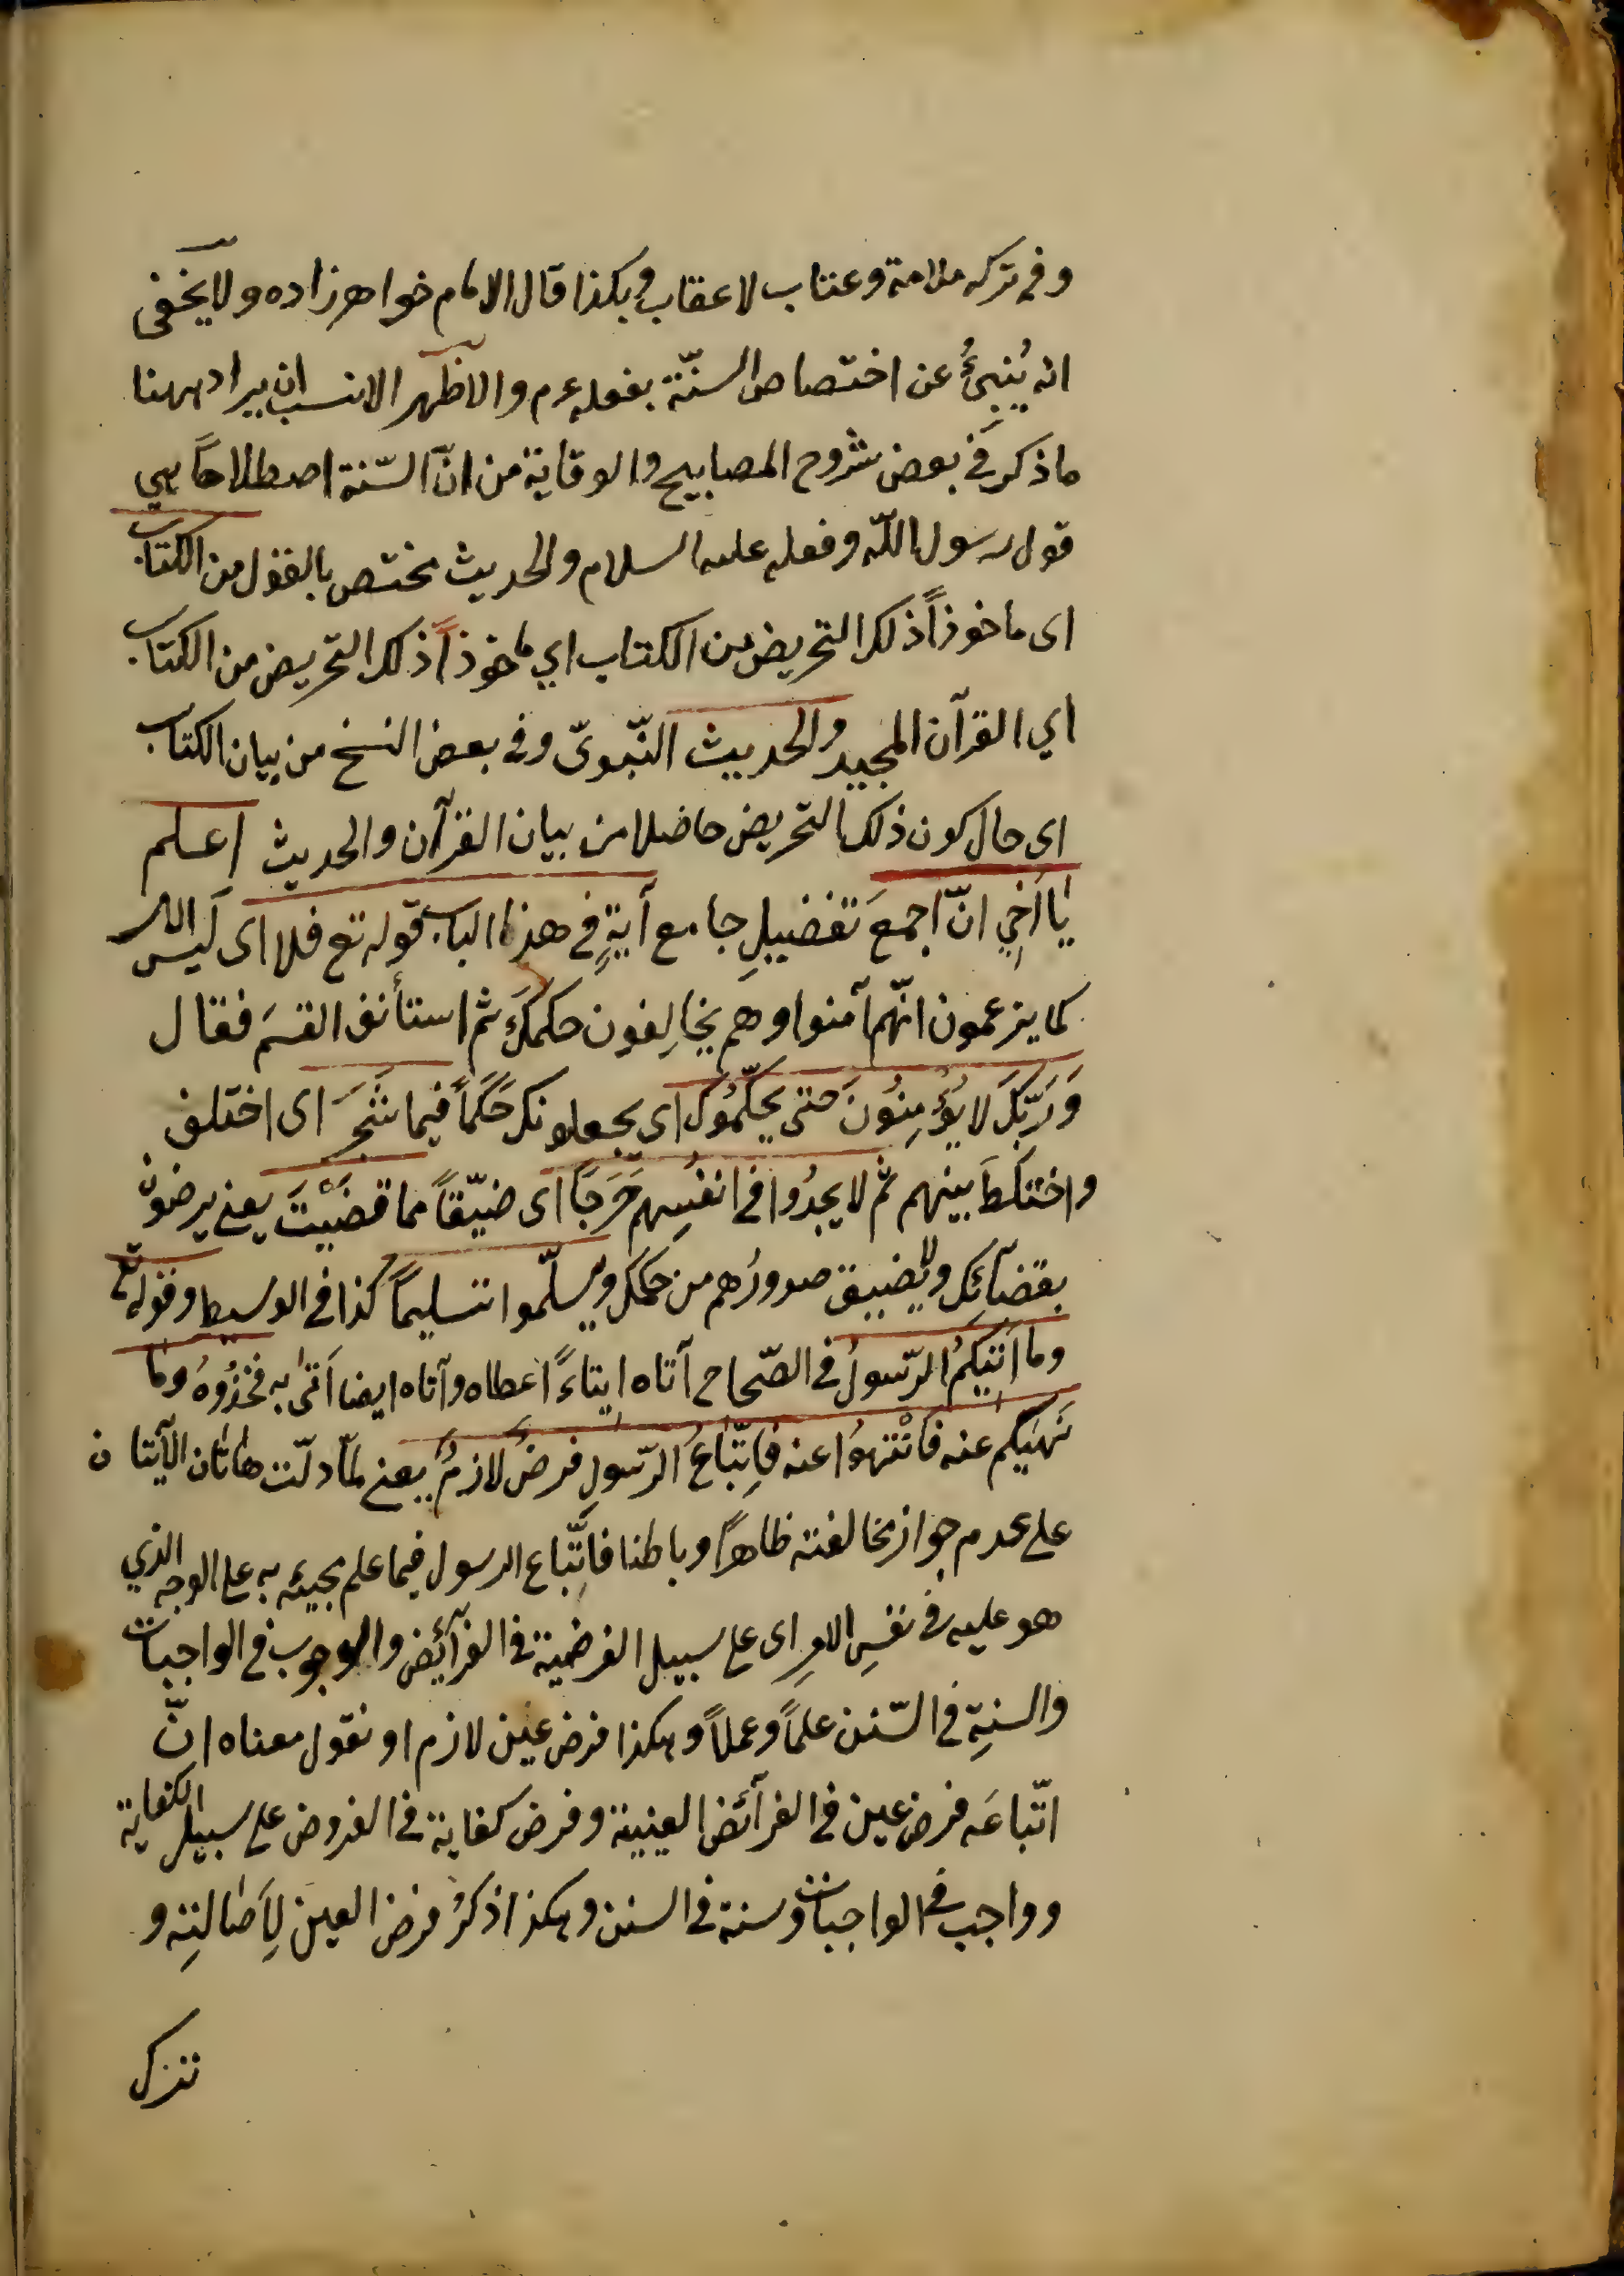 وفى تركه ملامة وعتاب لا عقاب وهكذا قال الامام خواهرزاده ولا يخفى
انه يُنبِئُ عن اختصاص السنّة بفعله ءم والاظهر الانسب ان يراد ههنا
ما ذكر فى بعض شروح المصابيح والوقاية من انّ السّنة اصطلاحاً هي
قول رسول اللّه وفعله عليه السلام والحديث مختص بالقول من الكتاب
اى ماخوذاً ذلك التحريض من الكتاب اي ماخوذاً ذلك التحريض من الكتاب
اي القرآن المجيد والحديث النّبوىّ وفى بعض النسخ من بيان الكتاب
اى حال كون ذلك التحريض حاصلا من بيان القرآن والحديث اعلم
يا اَخِي انّ اجمعَ تفضيلِ جامع آيةٍ فى هذا الباب قوله تع فلا اى لَيس الامر
كما يزعمون انّهم آمنوا وهم يخالِفون حكمكَ ثم استأنف القسَم فقال
وَرَبِّكَ لا يُؤْمِنُونَ حتى يحكّمُوك اى يجعلونك حَكَماً فيما شَجَرَ اى اختلف
واختلَطَ بينهم ثم لا يجدُوا فى انفُسِهم حَرَجاً اى ضيّقاً مما قضَيْتَ يعنى يرضون
بقضآئِكَ ولا يضيق صدورُهم من حكمك ويسلّموا تسليماً كذا فى الوسيط وقوله تع
وما اَتيكمُ الرّسولُ فى الصّحاح آتاه ايتاءً اعطاه وآتاه ايضا اَتى به فخذُوهُ وما
نَهيكم عنه فَانْتهُوا عنه فاِتّباعُ الرّسولِ فرضٌ لازمٌ يعنى لمّا دلّت هاتان الآيتان
على عدم جواز مخالفته ظاهراً وباطنا فاتّباع الرسول فيما علم مجيئه به على الوجه الذي
هو عليه فى نفسِ الامرِ اى على سبيل الفرضية فى الفرآئض والوجوب فى الواجبات
والسنيةِ فى السّنن علماً وعملاً وهكذا فرض عين لازم او نقول معناه انّ
اتّباعَه فرض عين فى الفرآئض العينية وفرض كفاية فى الفروض على سبيل الكفاية
وواجب فى الواجبات وسنة فى السنن وهكذا ذكرُ فرض العين لِأصالتِهِ و
تنزل